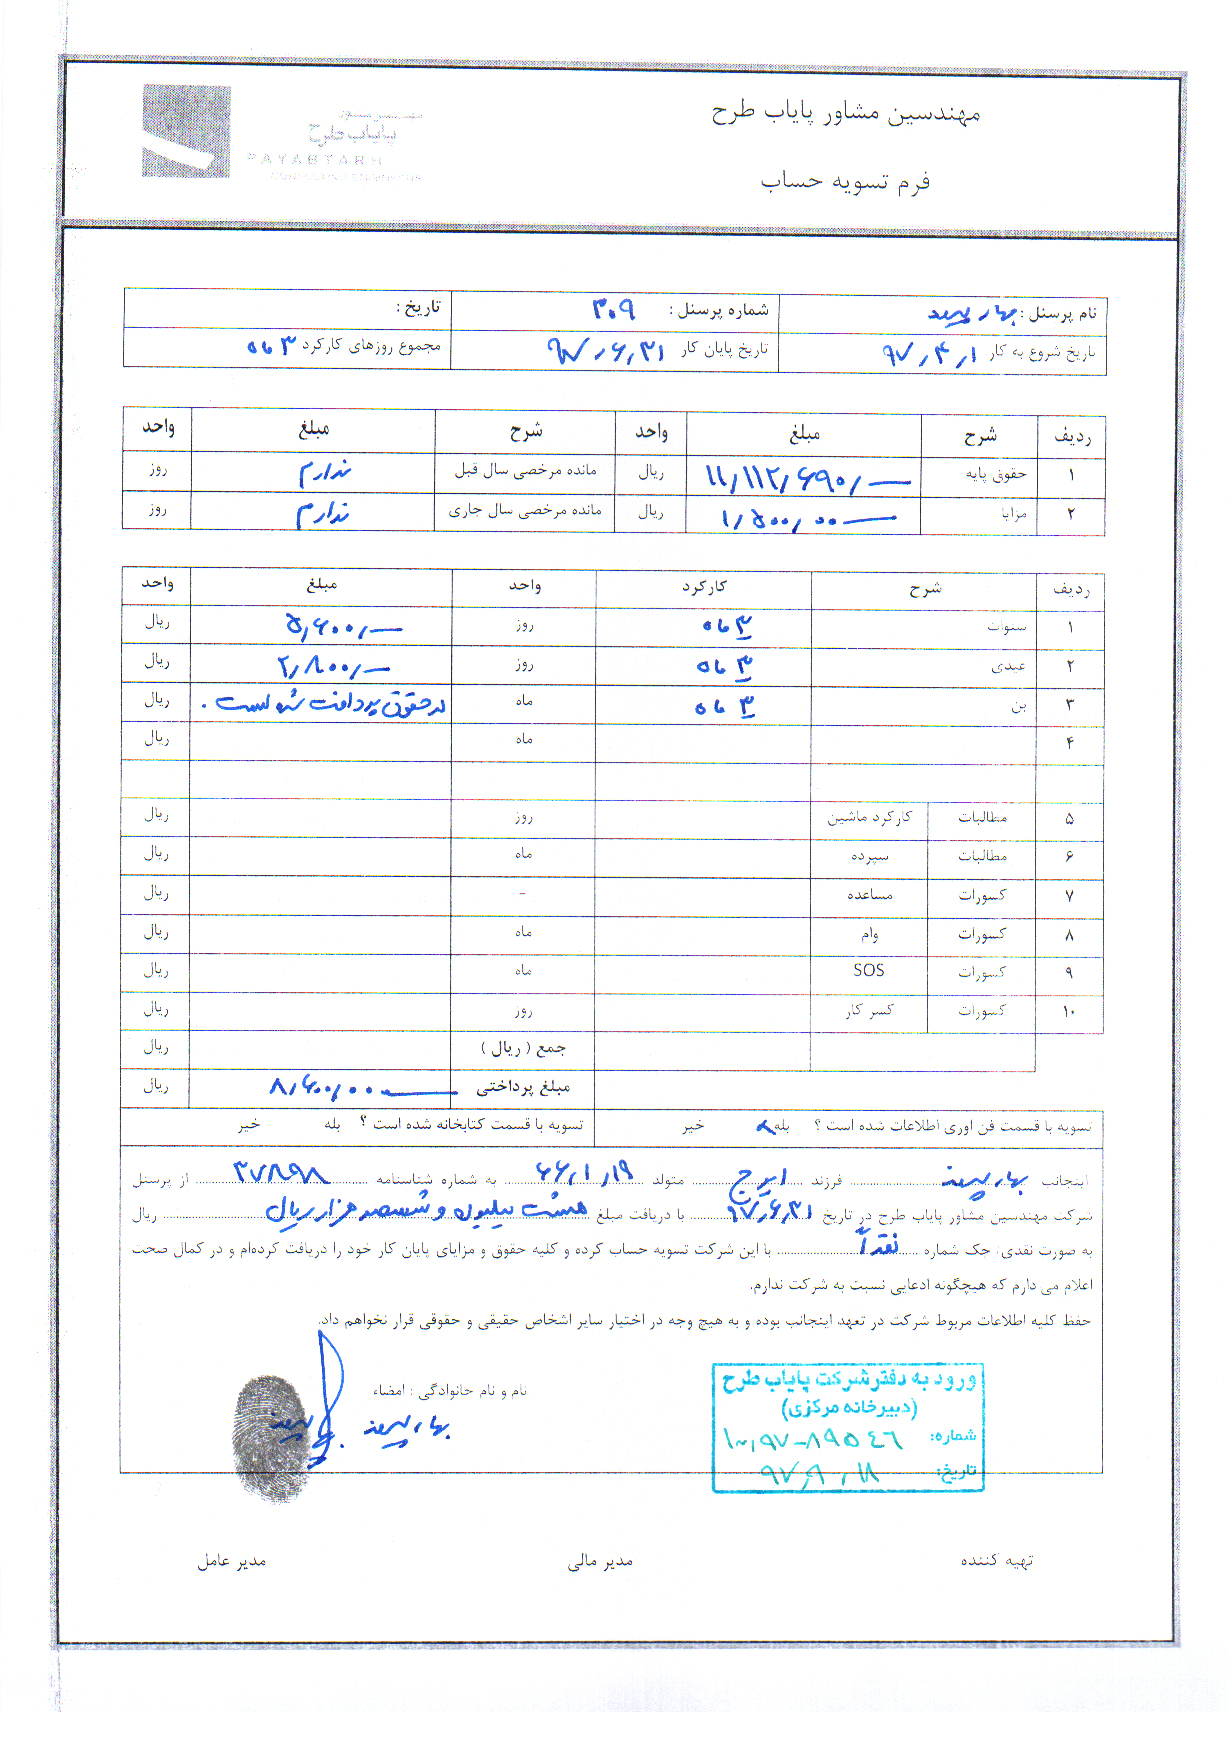 مهندسین مشاور پایاب طرح
پایاب طرح
PAYABTARH
فرم تسویه حساب
نام پرسنل : بهار شماره پرسنل : ۳۰۹ تاریخ :
تاریخ شروع به کار ۹۷/۴/۱ تاریخ پایان کار ۹۷/۶/۳۱ مجموع روزهای کارکرد ۳ ماه
ردیف شرح مبلغ واحد شرح مبلغ واحد
۱ حقوق پایه ۱۱/۱۱۲/۶۹۰/— ریال مانده مرخصی سال قبل ندارم روز
۲ مزایا ۱/۵۰۰/۰۰— ریال مانده مرخصی سال جاری ندارم روز
ردیف شرح کارکرد واحد مبلغ واحد
۱ سنوات ۳ ماه روز ۵/۶۰۰/— ریال
۲ عیدی ۳ ماه روز ۲/۸۰۰/— ریال
۳ بن ۳ ماه ماه در حقوق پرداخت شده است . ریال
۴ ماه ریال
۵ مطالبات کارکرد ماشین روز ریال
۶ مطالبات سپرده ماه ریال
۷ کسورات مساعده - ریال
۸ کسورات وام ماه ریال
۹ کسورات SOS ماه ریال
۱۰ کسورات کسر کار روز ریال
جمع ( ریال ) ریال
مبلغ پرداختی ۸/۶۰۰/۰۰— ریال
تسویه با قسمت فن اوری اطلاعات شده است ؟ بله خیر تسویه با قسمت کتابخانه شده است ؟ بله خیر
اینجانب بهار فرزند ایرج متولد ۶۶/۱/۱۹ به شماره شناسنامه ۳۷۸۹۸ از پرسنل
شرکت مهندسین مشاور پایاب طرح در تاریخ ۹۷/۶/۳۱ با دریافت مبلغ هشت میلیون و ششصد هزار ریال ریال
به صورت نقدی: چک شماره نقداً با این شرکت تسویه حساب کرده و کلیه حقوق و مزایای پایان کار خود را دریافت کرده‌ام و در کمال صحت
اعلام می دارم که هیچگونه ادعایی نسبت به شرکت ندارم.
حفظ کلیه اطلاعات مربوط شرکت در تعهد اینجانب بوده و به هیچ وجه در اختیار سایر اشخاص حقیقی و حقوقی قرار نخواهم داد.
نام و نام خانوادگی : امضاء
بهار
ورود به دفتر شرکت پایاب طرح
(دبیرخانه مرکزی)
شماره: ۱۰۰/۹۷-۸۹۵۴۶
تاریخ: ۹۷/۹/۱۸
تهیه کننده مدیر مالی مدیر عامل